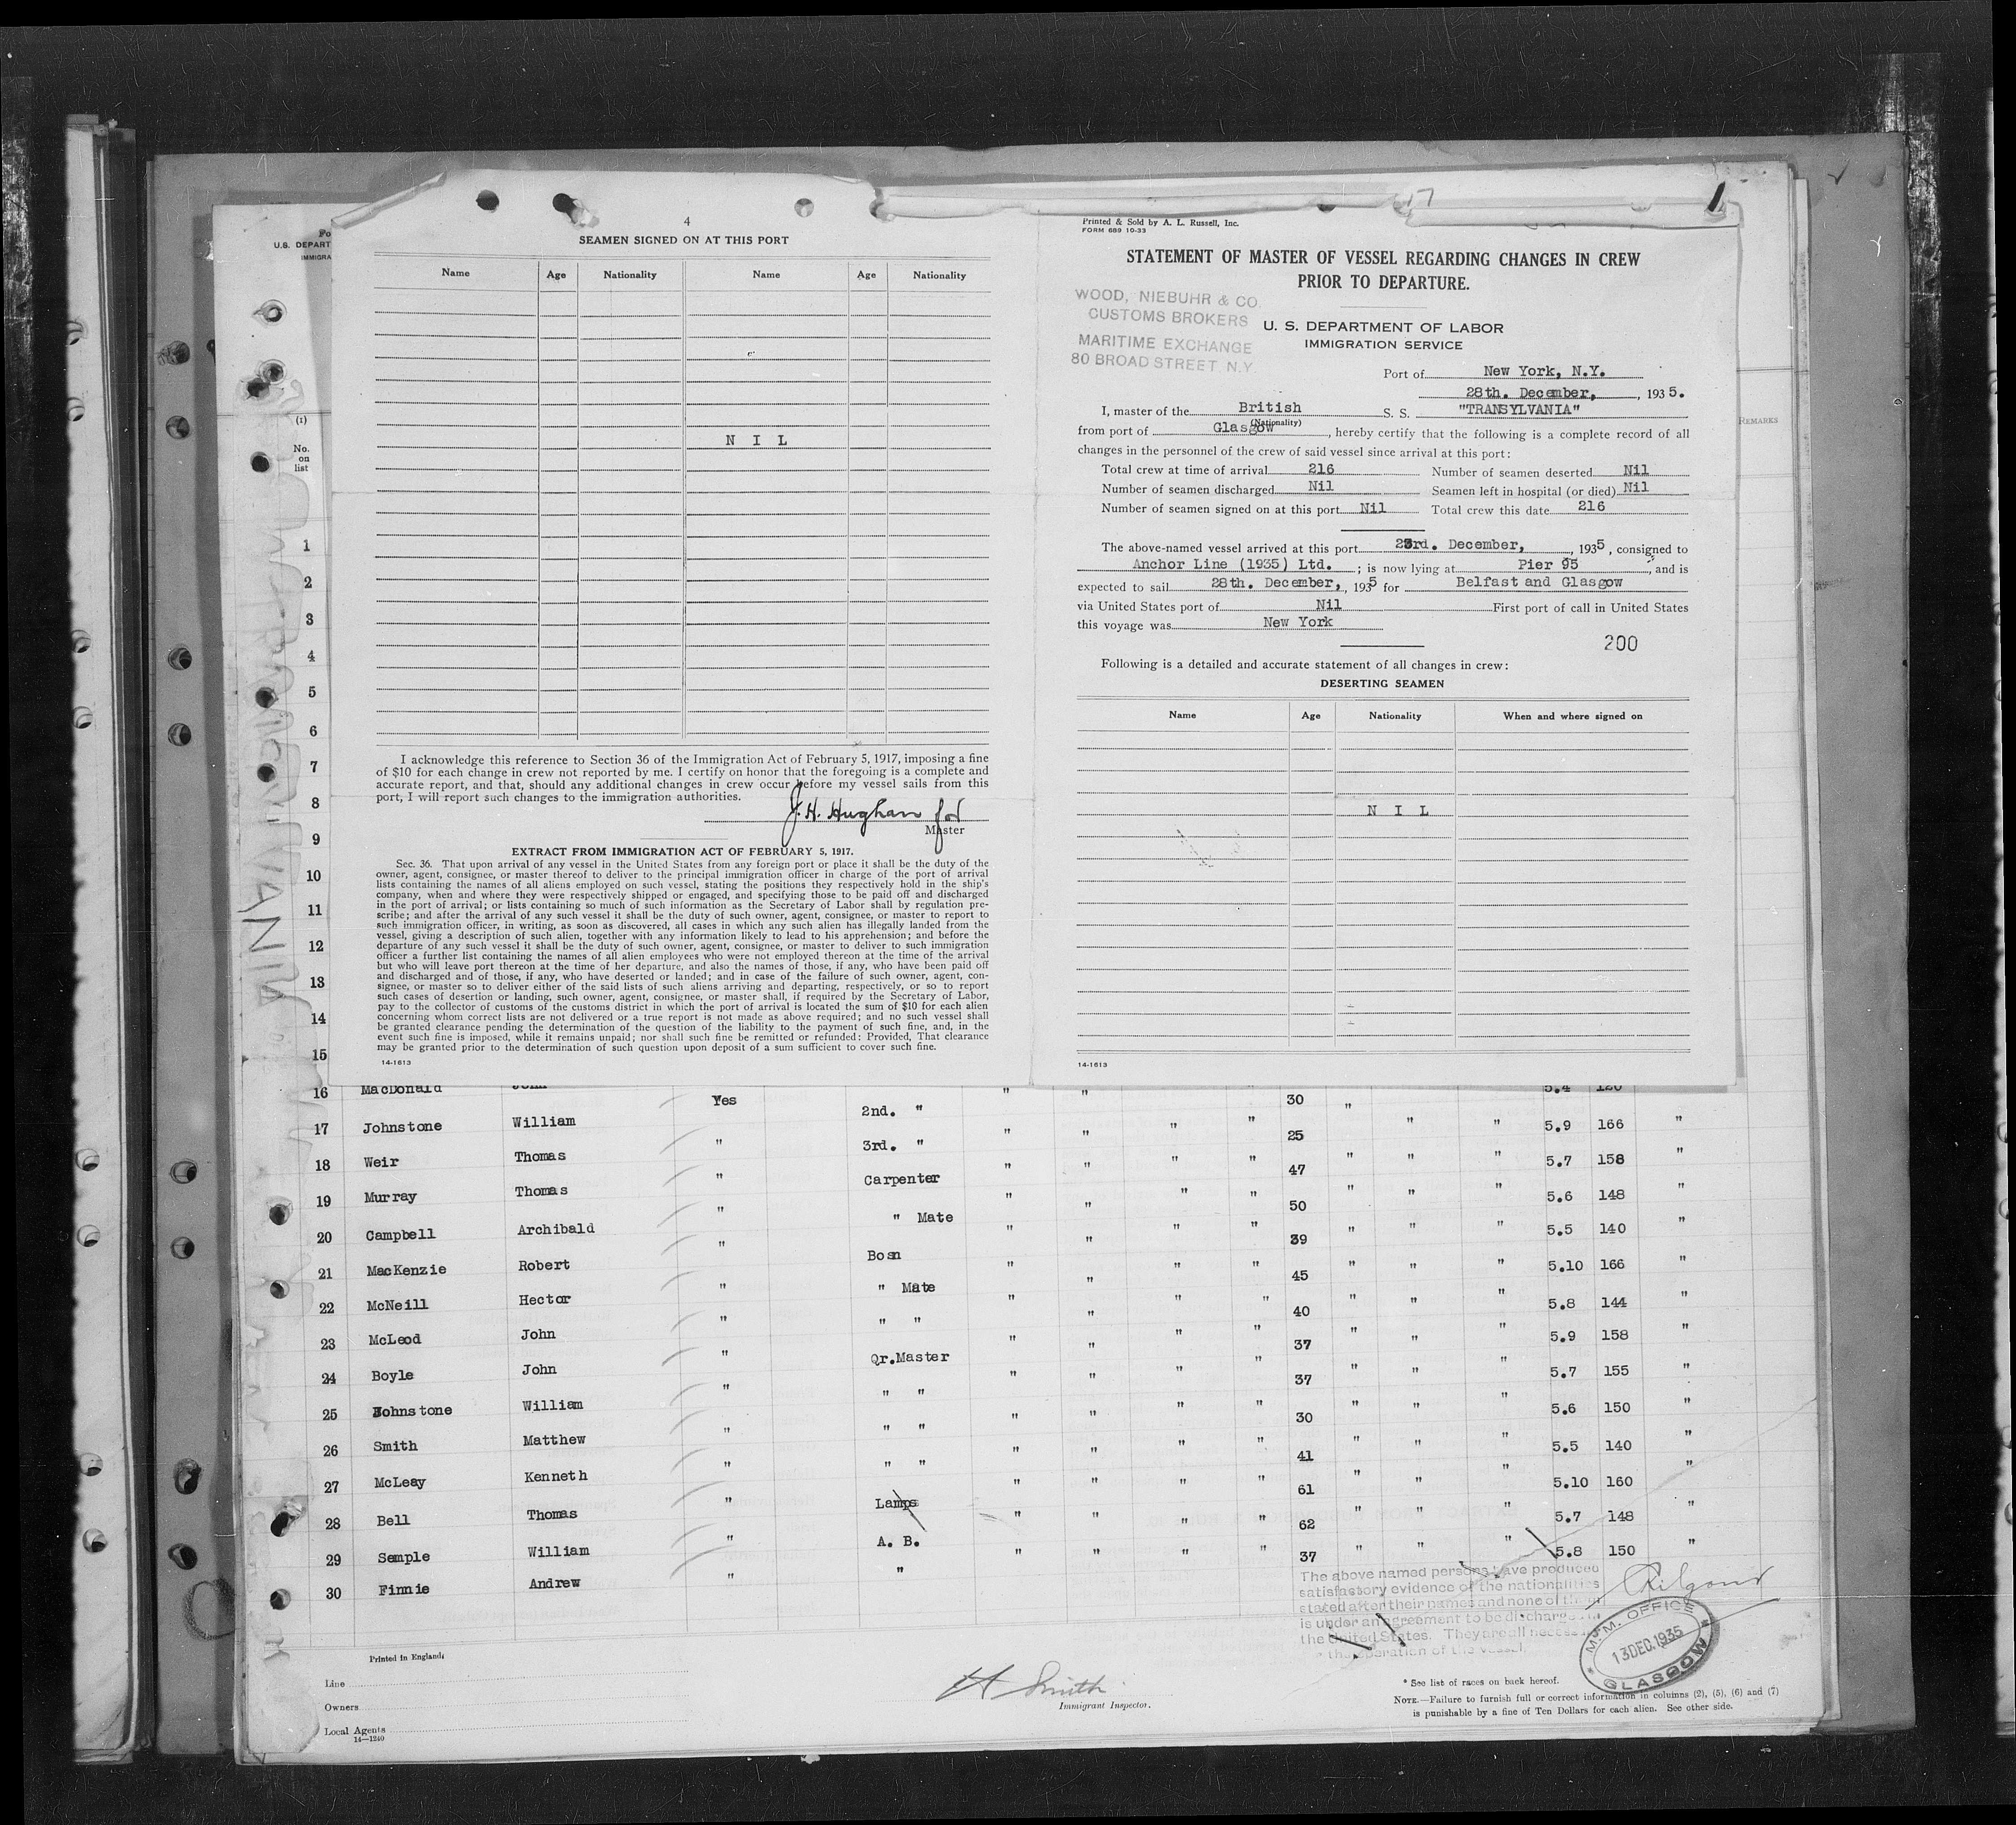 4
SEAMEN SIGNED ON AT THIS PORT
Name Age Nationality Name Age Nationality
N I L
I acknowledge this reference to Section 36 of the Immigration Act of February 5, 1917, imposing a fine
of $10 for each change in crew not reported by me. I certify on honor that the foregoing is a complete and
accurate report, and that, should any additional changes in crew occur before my vessel sails from this
port, I will report such changes to the immigration authorities.
J. H. Hughan for
Master
EXTRACT FROM IMMIGRATION ACT OF FEBRUARY 5, 1917.
Sec. 36. That upon arrival of any vessel in the United States from any foreign port or place it shall be the duty of the
owner, agent, consignee, or master thereof to deliver to the principal immigration officer in charge of the port of arrival
lists containing the names of all aliens employed on such vessel, stating the positions they respectively hold in the ship's
company, when and where they were respectively shipped or engaged, and specifying those to be paid off and discharged
in the port of arrival; or lists containing so much of such information as the Secretary of Labor shall by regulation pre-
scribe; and after the arrival of any such vessel it shall be the duty of such owner, agent, consignee, or master to report to
such immigration officer, in writing, as soon as discovered, all cases in which any such alien has illegally landed from the
vessel, giving a description of such alien, together with any information likely to lead to his apprehension; and before the
departure of any such vessel it shall be the duty of such owner, agent, consignee, or master to deliver to such immigration
officer a further list containing the names of all alien employees who were not employed thereon at the time of the arrival
but who will leave port thereon at the time of her departure, and also the names of those, if any, who have been paid off
and discharged and of those, if any, who have deserted or landed; and in case of the failure of such owner, agent, con-
signee, or master so to deliver either of the said lists of such aliens arriving and departing, respectively, or so to report
such cases of desertion or landing, such owner, agent, consignee, or master shall, if required by the Secretary of Labor,
pay to the collector of customs of the customs district in which the port of arrival is located the sum of $10 for each alien
concerning whom correct lists are not delivered or a true report is not made as above required; and no such vessel shall
be granted clearance pending the determination of the question of the liability to the payment of such fine, and, in the
event such fine is imposed, while it remains unpaid; nor shall such fine be remitted or refunded: Provided, That clearance
may be granted prior to the determination of such question upon deposit of a sum sufficient to cover such fine.
14-1613
Printed & Sold by A. L. Russell, Inc.
FORM 689 10-33
STATEMENT OF MASTER OF VESSEL REGARDING CHANGES IN CREW
PRIOR TO DEPARTURE.
WOOD, NIEBUHR & CO.
CUSTOMS BROKERS
MARITIME EXCHANGE
80 BROAD STREET, N.Y.
U. S. DEPARTMENT OF LABOR
IMMIGRATION SERVICE
Port of New York, N.Y.
28th. December, , 1935.
I, master of the British S. S. "TRANSYLVANIA"
(Nationality)
from port of Glasgow , hereby certify that the following is a complete record of all
changes in the personnel of the crew of said vessel since arrival at this port:
Total crew at time of arrival 216 Number of seamen deserted Nil
Number of seamen discharged Nil Seamen left in hospital (or died) Nil
Number of seamen signed on at this port Nil Total crew this date 216
The above-named vessel arrived at this port 23rd. December, , 1935, consigned to
Anchor Line (1935) Ltd. ; is now lying at Pier 95 , and is
expected to sail 28th. December, , 1935 for Belfast and Glasgow
via United States port of Nil First port of call in United States
this voyage was New York
200
Following is a detailed and accurate statement of all changes in crew:
DESERTING SEAMEN
Name Age Nationality When and where signed on
N I L
14-1613
Fo
U.S. DEPART
IMMIGRA
REMARKS
(1)
No.
on
list
1
2
3
4
5
6
7
8
9
10
11
12
13
14
15
16 MacDonald John 5.4 120
17 Johnstone William Yes 2nd. " " " 30 " " " 5.9 166 "
18 Weir Thomas " 3rd. " " " " " 25 " " " 5.7 158 "
19 Murray Thomas " Carpenter " " " " 47 " " " 5.6 148 "
20 Campbell Archibald " " Mate " " " " 50 " " " 5.5 140 "
21 MacKenzie Robert " Bosn " " " " 39 " " " 5.10 166 "
22 McNeill Hector " " Mate " " " " 45 " " " 5.8 144 "
23 McLeod John " " " " " " " 40 " " " 5.9 158 "
24 Boyle John " Qr.Master " " " " 37 " " " 5.7 155 "
25 Johnstone William " " " " " " " 37 " " " 5.6 150 "
26 Smith Matthew " " " " " " " 30 " " " 5.5 140 "
27 McLeay Kenneth " " " " " " " 41 " " " 5.10 160 "
28 Bell Thomas " Lamps " " " " 61 " " " 5.7 148 "
29 Semple William " A. B. " " " " 62 " " " 5.8 150 "
30 Finnie Andrew " " " " " " 37
The above named persons have produced
satisfactory evidence of the nationalities
stated after their names and none of them
is under an agreement to be discharged in
the United States. They are all necessary
the operation of the vessel.
M.M. OFFICE
13 DEC. 1935
GLASGOW
Printed in England.
Line
Owners
Local Agents
14—1240
H Smith
Immigrant Inspector.
* See list of races on back hereof.
NOTE.—Failure to furnish full or correct information in columns (2), (5), (6) and (7)
is punishable by a fine of Ten Dollars for each alien. See other side.